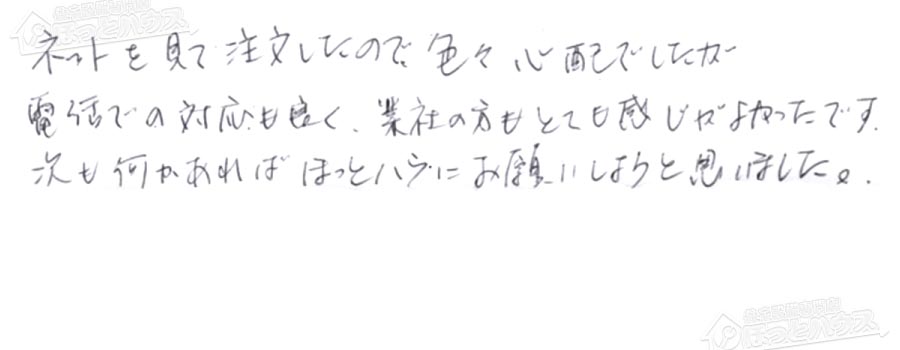 ネットを見て注文したので色々心配でしたが
電話での対応も良く、業社の方もとても感じがよかったです.
次も何かあればほっとハウスにお願いしようと思いました。.
ほっとハウス
ほっとハウス